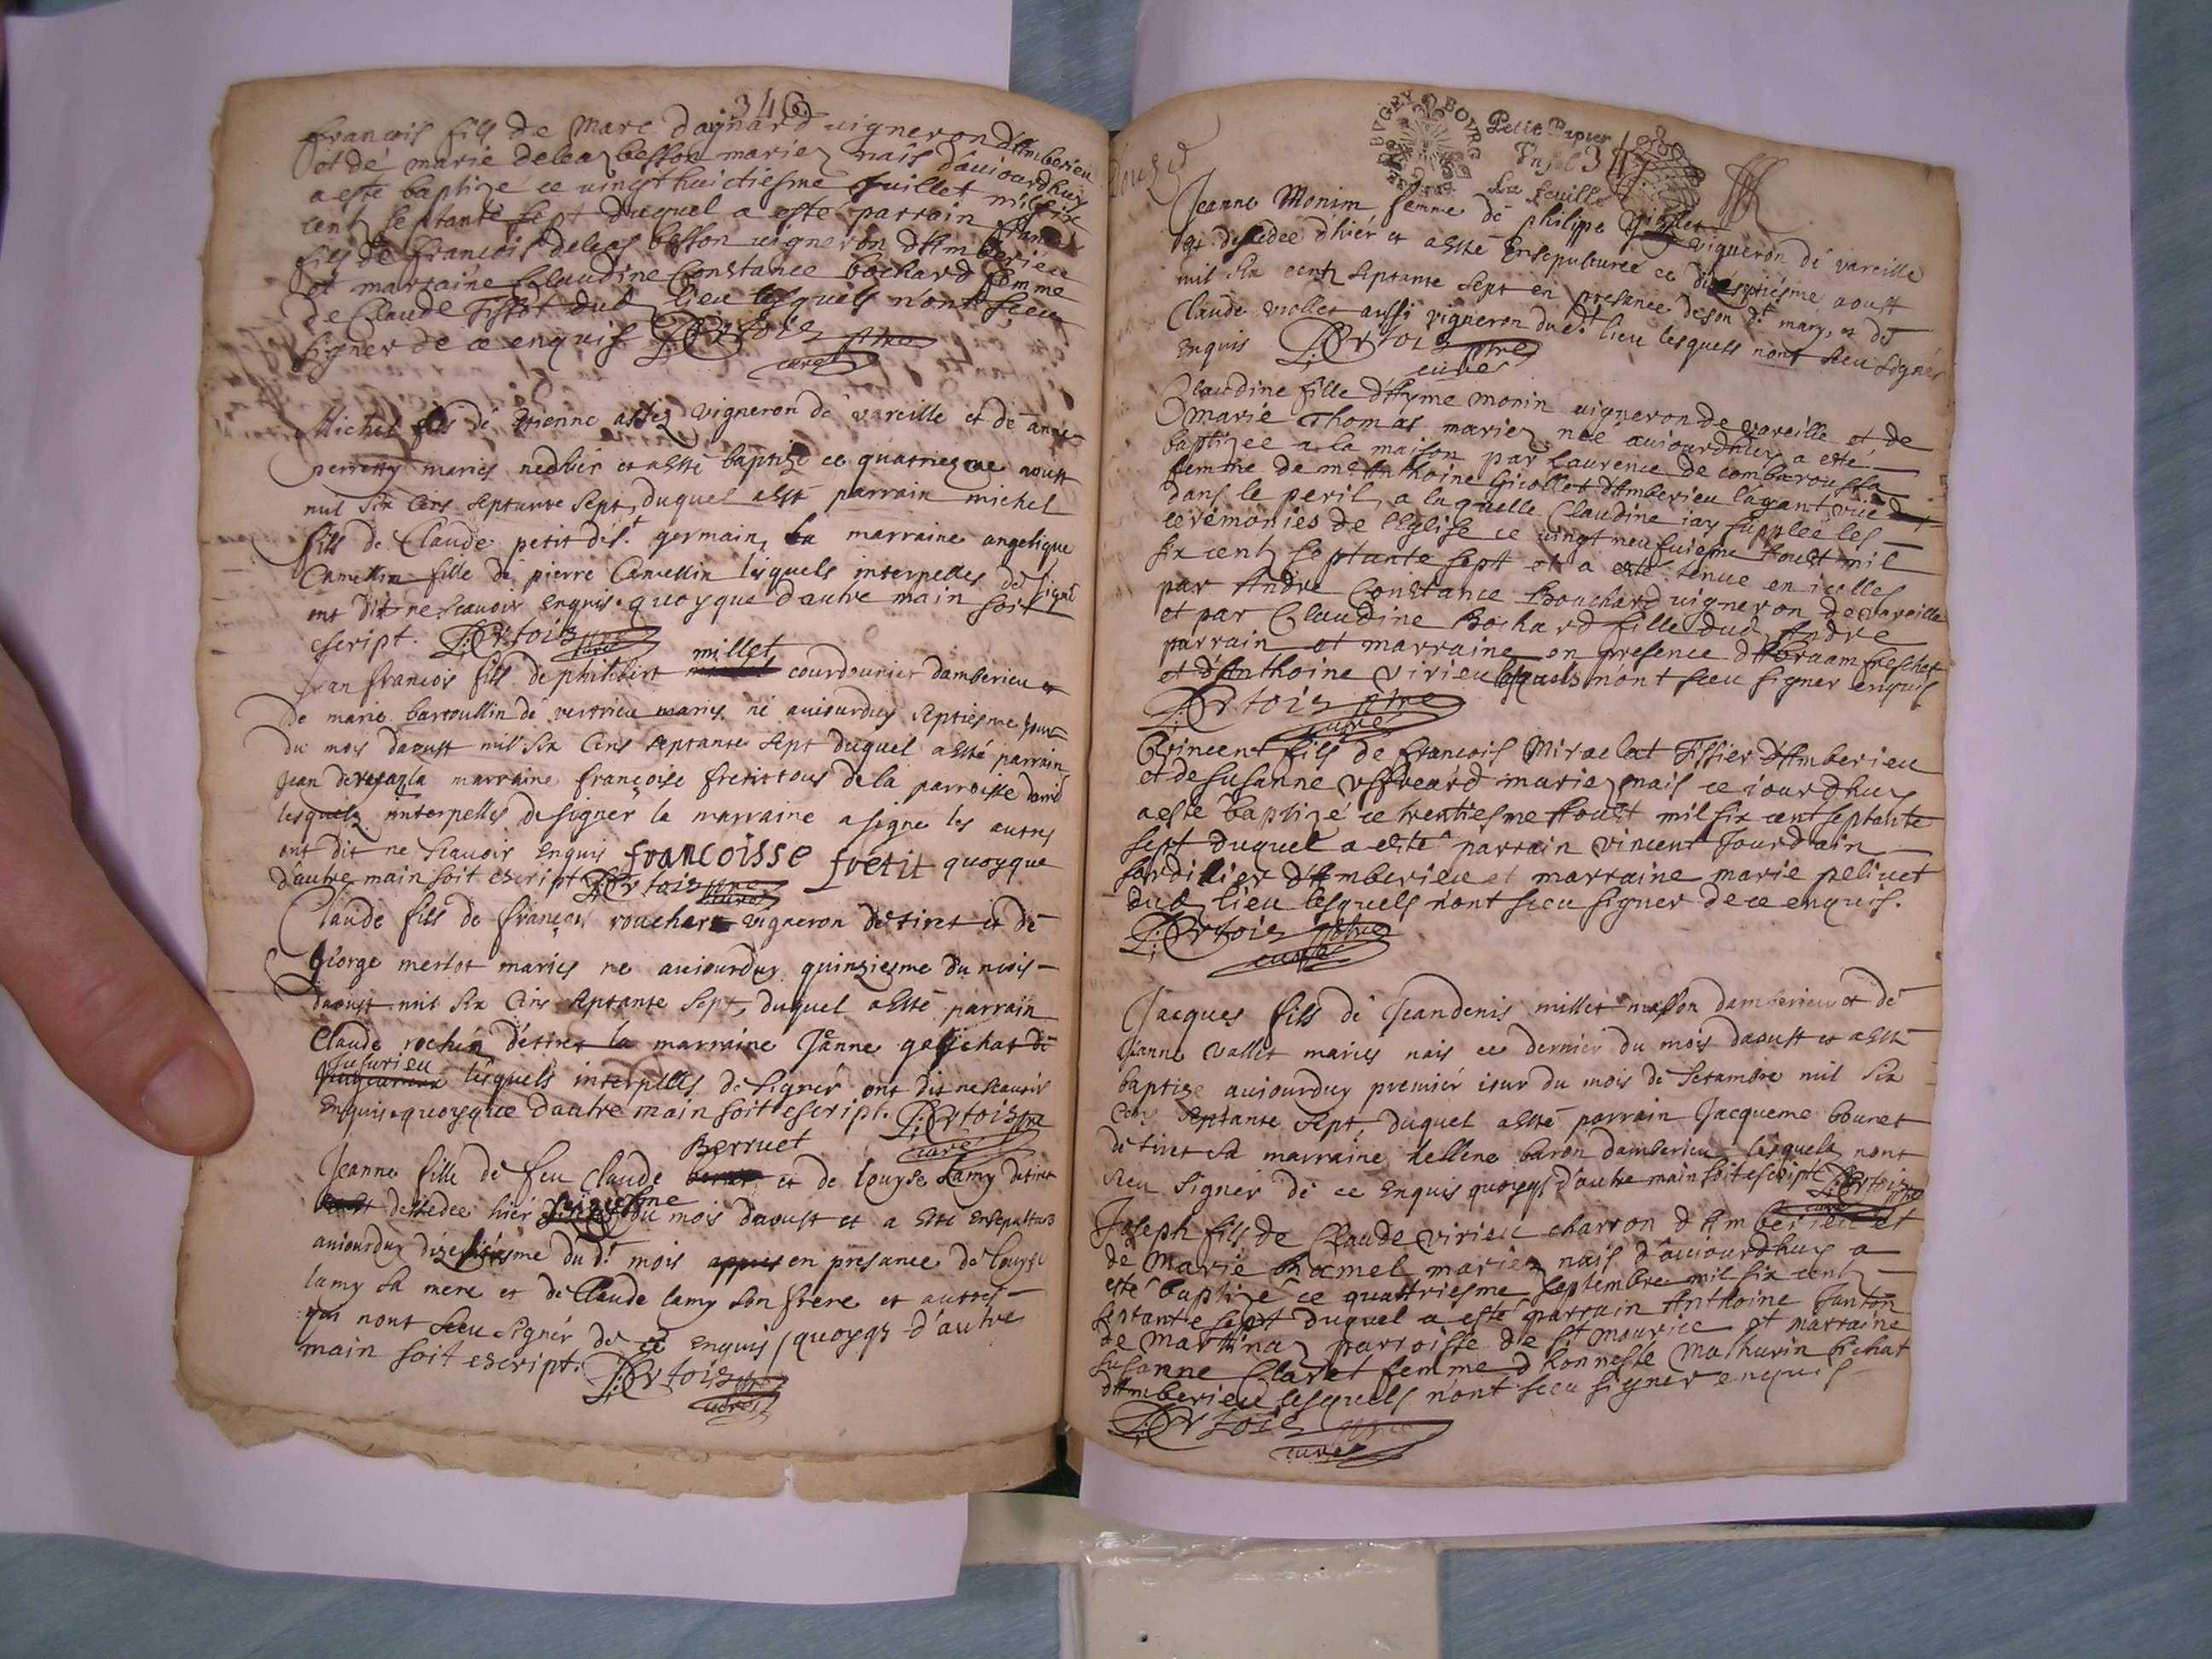 346
francois fils de Marc Dagnard vigneron d'Amberieu
et de marie delea besson mariez nais d'auiourdhuy
a esté baptizé ce uingt huictiesme Juillet mil six
cent septante sept duquel a esté parrain
fils de francois deleas besson uigneron d'Amberieu
et marraine Claudine Constance bochard femme
de Claude Tissot dud lieu lesquels n'ont sceu
signer de ce enquis P: Ortois pbre
curé
Michel fils de Etienne vigneron de vareille et de anne
perretty mariés nedhier et a esté baptizé ce quatriesme aoust
mil six cens septante sept, duquel a esté parrain michel
fils de Claude petit de st germain, la marraine angelique
Camellin fille de pierre Camellin lesquels interpelles de signé
ont dit ne scauoir enquis. quoyque d'autre main soit
escript. P: Ortois pbre
curé
millet
Jean francois fils de philibert courdounier damberieu et
De marie bartoullin de vertrieu mariés né auiourduy septiesme jour
du mois daoust mil six cens septante sept duquel a esté parrain
Jean la marraine françoise fretit tous de la parroisse
lesquels interpellés de signér la marraine a signe les autres
ont dit ne scauoir enquis francoisse fretit quoyque
d'autre main soit escript P: Ortois pbre
curé
Claude fils de françois vigneron de tiret et de
George merlot mariés né auiourduy quinziesme du mois
daoust mil six cens septante sept, duquel a esté parrain
Claude rochen de tiret la marraine Jeanne de
Jusurieu
lesquels interpellés de signér ont dit ne scauoir
Enquis. quoyque d'autre main soit escript. P: Ortois pbre
curé
Berruet
Jeanne fille de feu Claude et de louyse lamy de tiret
deccedee hier du mois daoust et a esté ensepulturé
auiourduy du dt mois en presance de louyse
lamy sa mere et de Claude lamy son frere et autres
qui nont sceu signér de ce enquis / quoyqz d'autre
main soit escript. P: Ortois pbre
curé
BVGEY BOVRG
Petit Papier
Vn sol
La feuille
Jeanne Monim femme de philippe vigneron de vareille
est decedee d'hier et a esté Ensepulturée ce aoust
mil six cents septante sept en presance de son dt mary, et de
Claude violles aussi vigneron dudt lieu lesquels nont sceu signér
enquis P: Ortois pbre
curé
Claudine fille d'Ayme monin uigneron de vareille et de
Marie Thomas mariez neé auiourdhuy a esté
baptizee a la maison par Laurence de combaroussa
femme de me Anthoine Giollet d'Amberieu l'ayant vuë
dans le peril, a laquelle Claudine iay suppleé les
cérémonies de l'Eglise ce uingt neufuiesme Aoust mil
six cent septante sept et a esté tenue en icelles
par Andre Constance Bouchard uigneron de vareille
et par Claudine Bochard fille dud Andre
parrain et marraine en presence d'Abraam freschet
et d'Anthoine Virieu lesquels n'ont sceu signer enquis
P: Ortois pbre
curé
Vincent fils de francois Miraclat Tissier d'Amberieu
et de Susanne mariez nais ce iourdhuy
a esté baptizé ce trentiesme Aoust mil six cent septante
sept duquel a esté parrain vincent Jourdain
d'Amberieu et marraine marie peliuet
dud lieu lesquels n'ont sceu signer de ce enquis.
P: Ortois pbre
curé
Jacques fils de Jeandenis millet masson damberieu et de
Jeanne vallet mariés nais ce dernier du mois daoust et a esté
baptize auiourduy premiér iour du mois de Setambre mil six
cens septante sept, duquel a esté parrain Jacqueme bounet
de tiret la marraine hellene baron damberieu lesquels nont
sceu signér de ce enquis quoyqz d'autre main soit escript P: Ortois pbre
curé
Joseph fils de Claude virieu charron d'Amberieu et
de Marie hamel mariez nais d'auiourdhuy a
esté baptizé ce quattriesme septembre mil six cent
septante sept duquel a esté parrain Anthoine
de Martinaz parroisse de st mourice et marraine
Susanne Claret femme d'honneste Mathurin bichat
d'Amberieu lesquels n'ont sceu signer enquis
P: Ortois pbre
curé